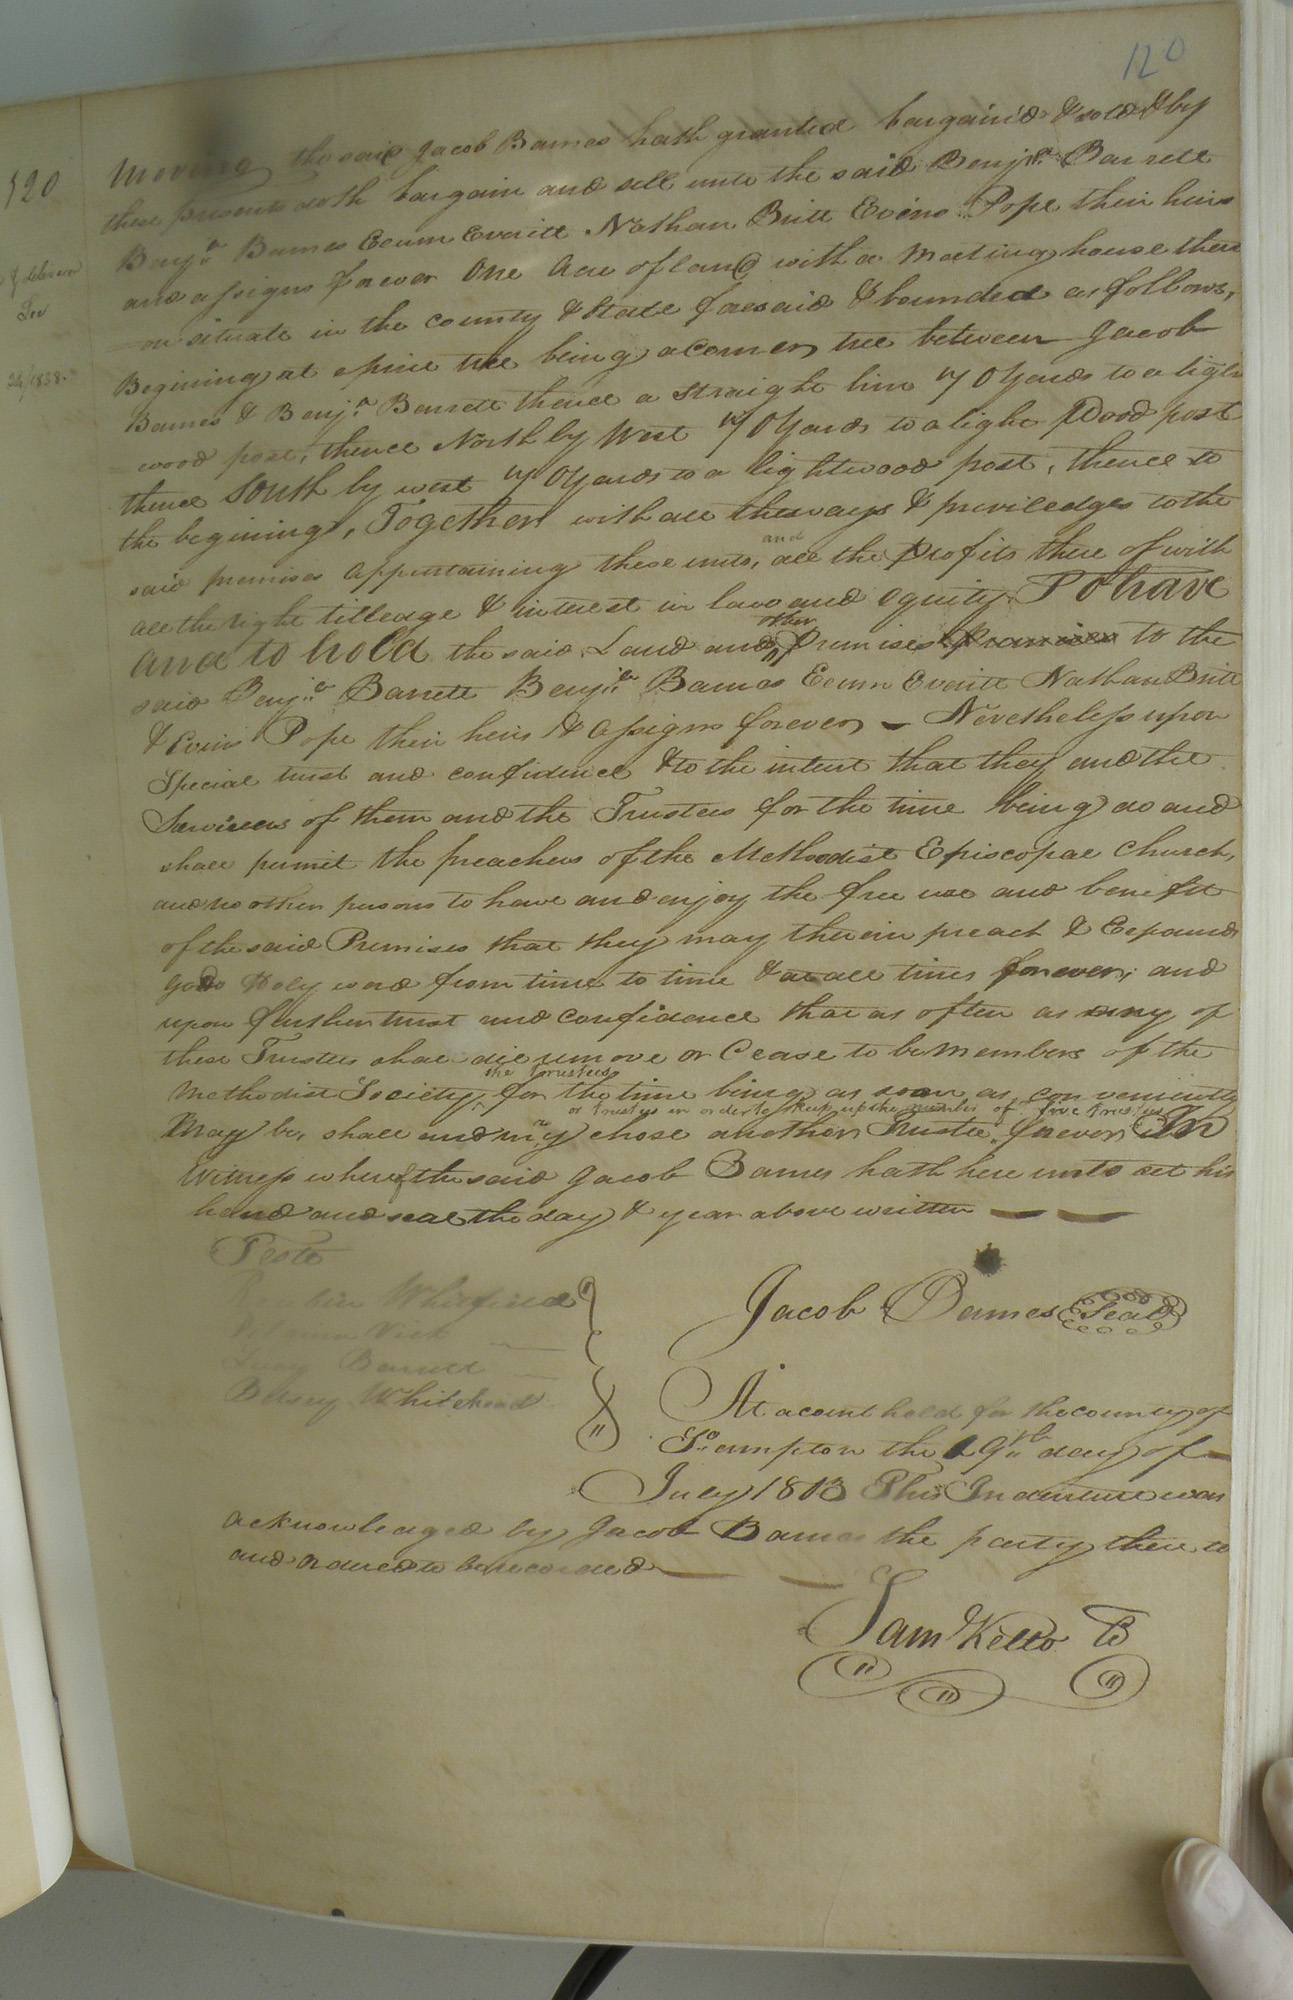 120
120
& deliver
24/1838.
Moving the said Jacob Barnes hath granted bargain'd & sold & by
these presents doth bargain and sell unto the said Benjn. Barrett
Benjn. Barnes Exum Everitt Nathan Britt Evins Pope their heirs
and assigns forever One Acre of land with a Meeting house there
on situate in the county & State foresaid & bounded as follows,
Begining at a pine tree being a Corner tree between Jacob
Barnes & Benjn. Barrett thence a straight line 70 Yards to a light
wood post, thence North by West 70 Yards to a light Wood post
thence South by west 70 Yards to a lightwood post, thence to
the begining, Together with all the ways & priviledges to the
said premises appurtaining these unto, and all the profits there of with
all the right titledge & interest in law and equity. To have
and to hold the said Land and other Premises to the
said Benjn. Barrett Benjn. Barnes Exum Everitt Nathan Britt
& Evins Pope their heirs & assigns forever — Nevertheless upon
Special trust and confidence & to the intent that they and the
Survivers of them and the Trustees for the time being do and
shall permit the preachers of the Methodist Episcopal Church,
and no other persons to have and enjoy the free use and benefit
of the said Premises that they may therein preach & Expound
Gods Holy word from time to time & at all times forever; and
upon further trust and confidence that as often as any of
these Trustees shall die remove or Cease to be members of the
Methodist Society, the trustees for the time being as soon as conveniently
May be, shall and may chose another Trustee or trustees in order to keep up the number of five trustees forever In
Witness whereof the said Jacob Barnes hath here unto set his
hand and seal the day & year above written
Teste
Whitfield
Vick
Lucy Barrett
Betsey Whitehead
Jacob Barnes Seal
At a court held for the county of
So. ampton the 19th day of
July 1813 This Indenture was
acknowledged by Jacob Barnes the party there to
and ordered to be recorded
Sam Kello